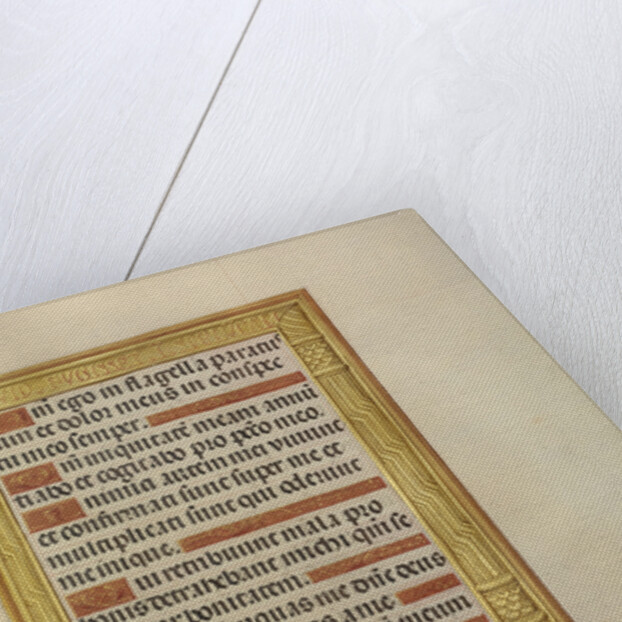 ni ego in flagella paratus
um et dolor meus in conspec
tu meo semper.
m iniquitatē meam annū
tiabo et cogitabo pro pctō meo.
nimici autem mei vivunt
et confirmati sunt super me et
multiplicati sunt qui oderunt
me inique.
ui retribuunt mala pro
bonis detrahebant michi qm̄ se
bonitatem.
quas me dn̄e deus